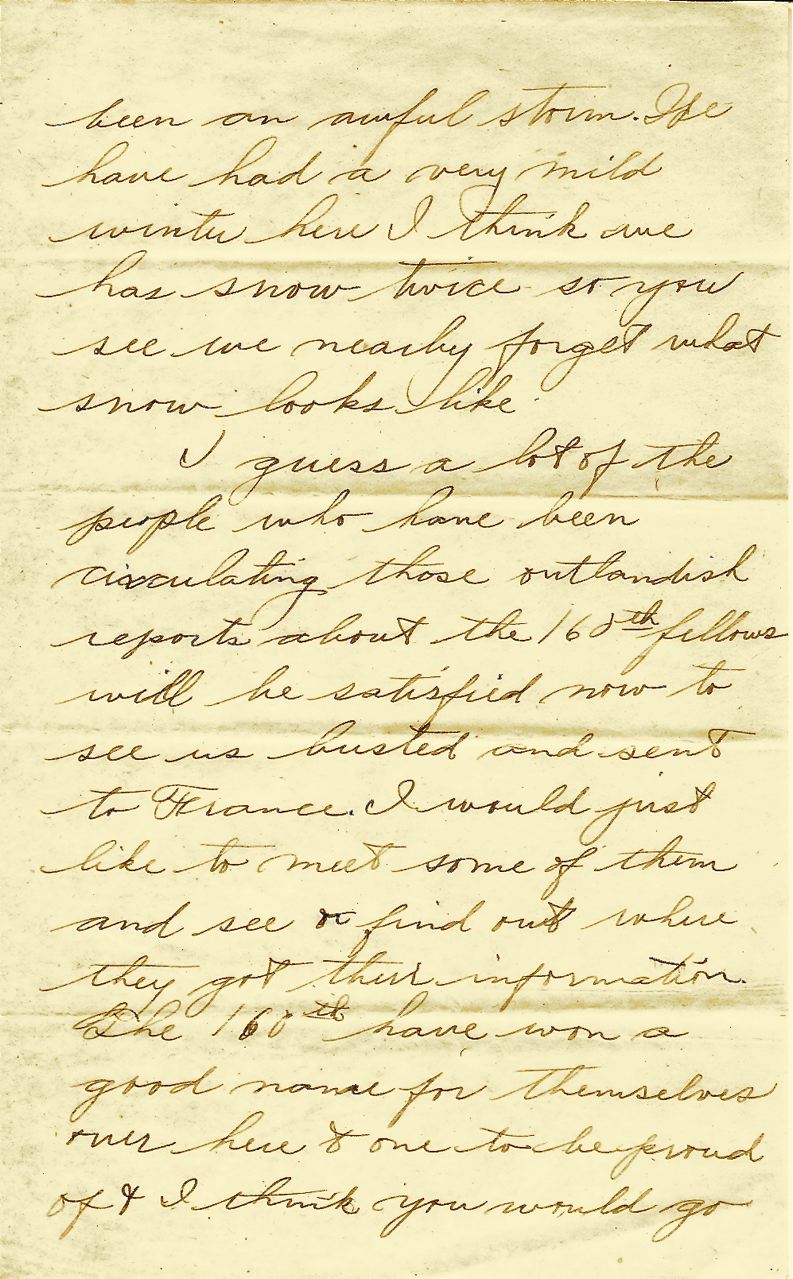 been an awful storm. We
have had a very mild
winter here I think we
has snow twice so you
see we nearly forget what
snow looks like.
I guess a lot of the
people who have been
circulating those outlandish
reports about the 160th fellows
will be satisfied now to
see us busted and sent
to France. I would just
like to meet some of them
and see or find out where
they got their information.
The 160th have won a
good name for themselves
over here & one to be proud
of & I think you would go